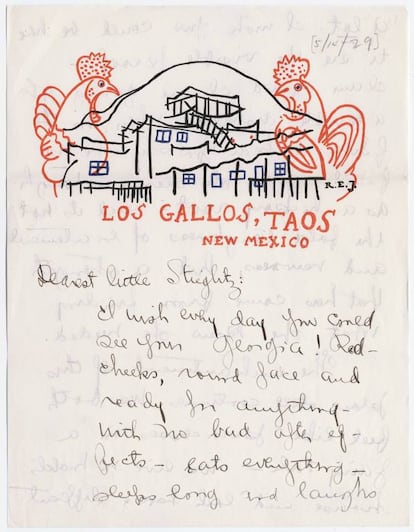 [5/14/29]
R.E.J.
LOS GALLOS, TAOS
NEW MEXICO
Dearest little Stieglitz:
I wish every day you could
see your Georgia! Red-
cheeks, round face and
ready for anything-
With no bad after ef-
fects - eats everything -
sleeps long and laughs